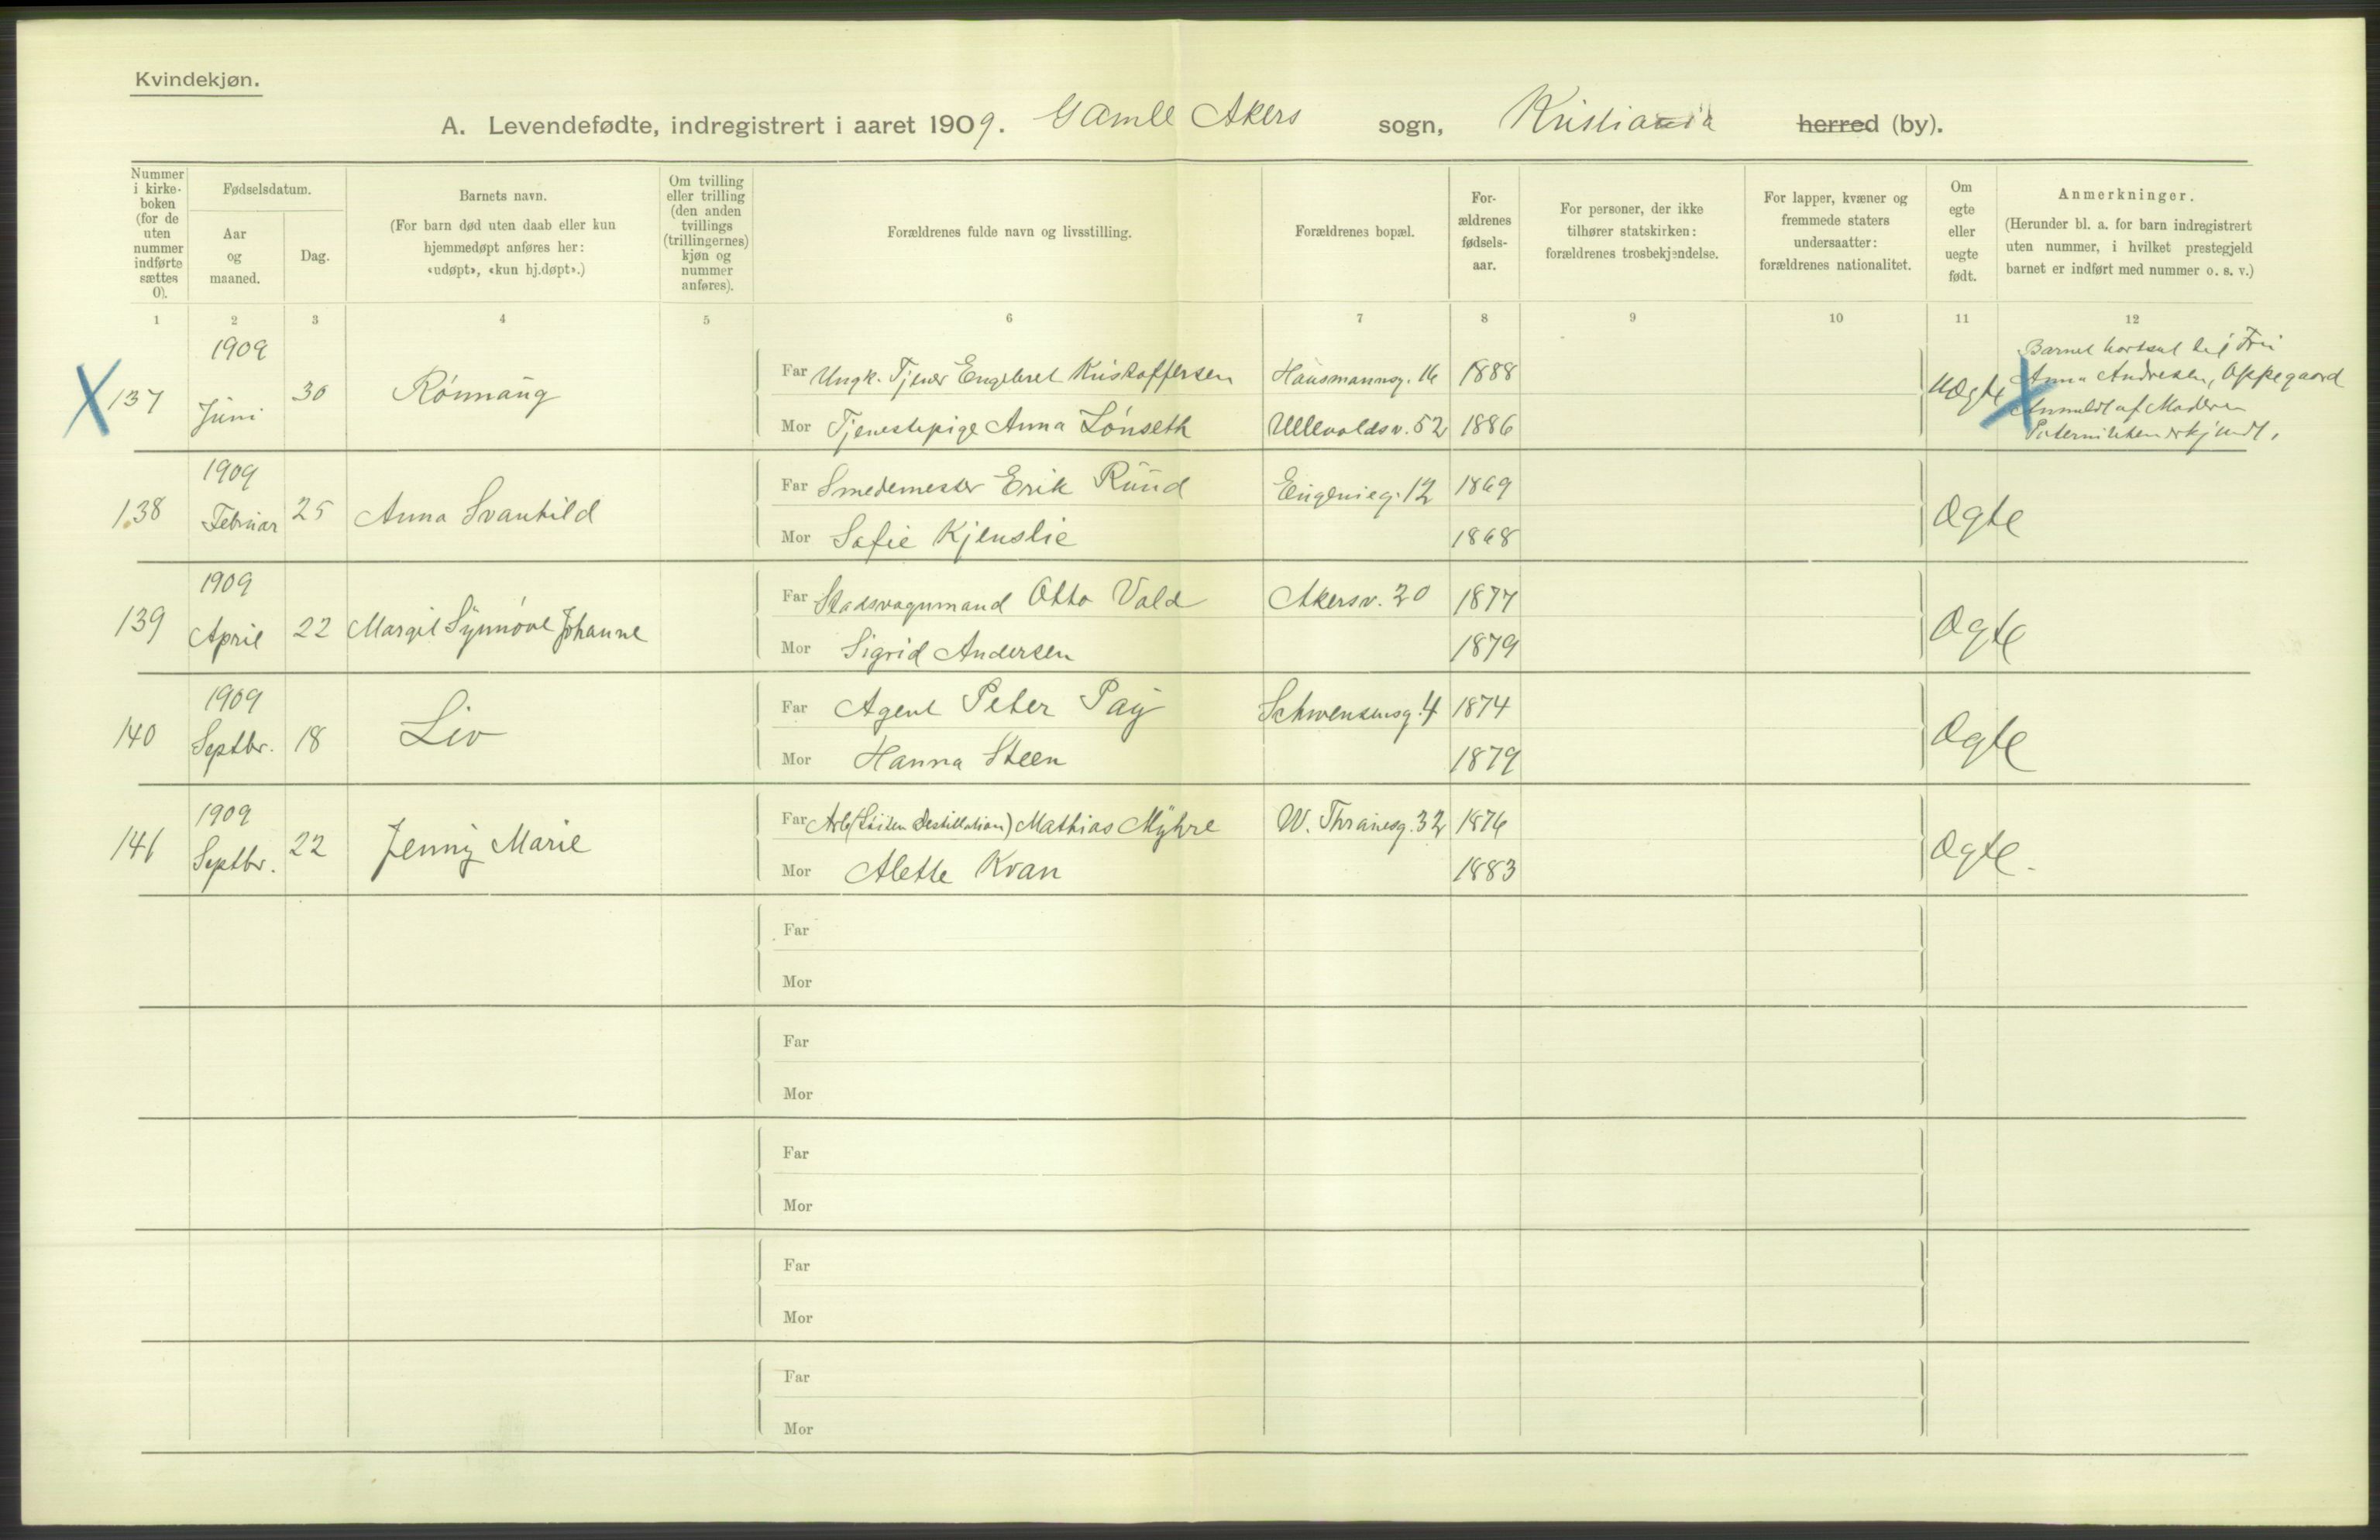 Kvindekjøn.
A. Levendefødte, indregistrert i aaret 1909. Gamle Akers sogn, Kristiania herred (by).
Nummer i kirke-boken (for de uten nummer indførte sættes 0).
Fødselsdatum.
Aar og maaned.
Dag.
Barnets navn.
(For barn død uten daab eller kun hjemmedøpt anføres her: «udøpt», «kun hj.døpt».)
Om tvilling eller trilling (den anden tvillings (trillingernes) kjøn og nummer anføres).
Forældrenes fulde navn og livsstilling.
Forældrenes bopæl.
For-ældrenes fødsels-aar.
For personer, der ikke tilhører statskirken: forældrenes trosbekjendelse.
For lapper, kvæner og fremmede staters undersaatter: forældrenes nationalitet.
Om egte eller uegte født.
Anmerkninger.
(Herunder bl. a. for barn indregistrert uten nummer, i hvilket prestegjeld barnet er indført med nummer o. s. v.)
1 2 3 4 5 6 7 8 9 10 11 12
X 137 1909 Juni 30 Rønnaug
Far Ungk. Tjener Engebret Kristoffersen Hausmannsg. 16 1888
Mor Tjenestepige Anna Lønseth Ullevoldsv. 52 1886
Uægte
Barnet bortsat til Fru
Anna Andresen, Oppegaard
Anmeldt af Moderen
X
138 1909 Februar 25 Anna Svanhild
Far Smedemester Erik Ruud Eugenieg. 12 1869
Mor Safie Kjenslie 1868
Ægte
139 1909 April 22 Margit Synnøve Johanne
Far Stadsvognmand Otto Vold Akersv. 20 1877
Mor Sigrid Andersen 1879
Ægte
140 1909 Septbr. 18 Liv
Far Agent Peter Pay Schwensensg. 4 1874
Mor Hanna Steen 1879
Ægte
141 1909 Septbr. 22 Jenny Marie
Far Arb (Løiten Destillation) Mathias Myhre W. Thranesg. 32 1876
Mor Alette Kvan 1883
Ægte.
Far
Mor
Far
Mor
Far
Mor
Far
Mor
Far
Mor